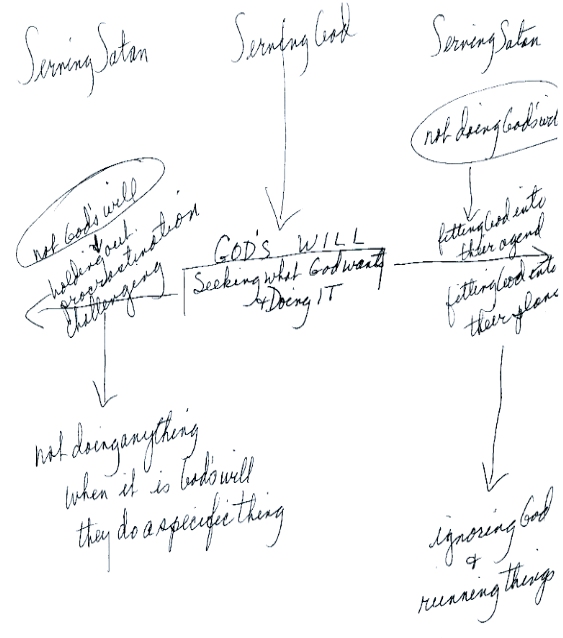 Serving Satan
Serving God
Serving Satan
not doing God's wil
not God's will
↓
holding out
procrastination
challenging
GOD'S WILL
Seeking what God wants
+ Doing IT
fitting God into
their agend
fitting God into
their plans
not doing anything
when it is God's will
they do a specific thing
ignoring God
+
running things